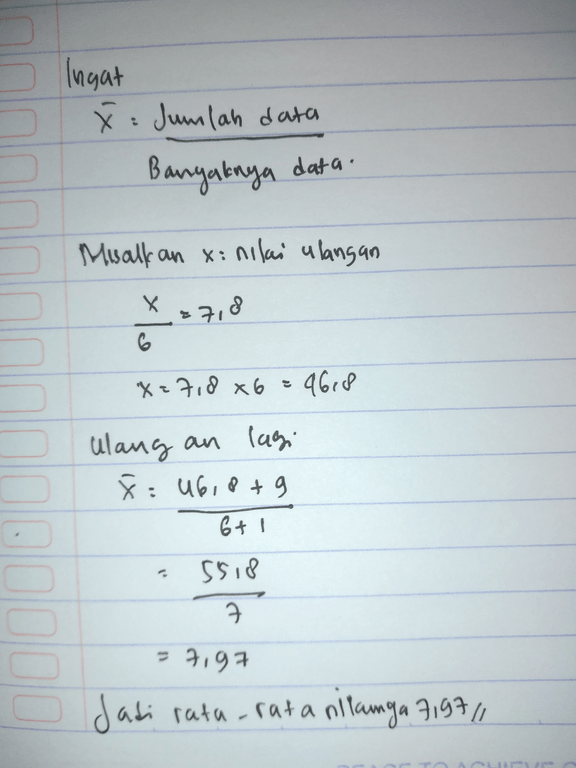 Ingat
x̄ = Jumlah data
Banyaknya data.
Misalkan x = nilai ulangan
x
6
= 7,8
x = 7,8 x 6 = 46,8
Ulangan lagi
x̄ = 46,8 + 9
6 + 1
= 55,8
7
= 7,97
Jadi rata-rata nilainya 7,97 //